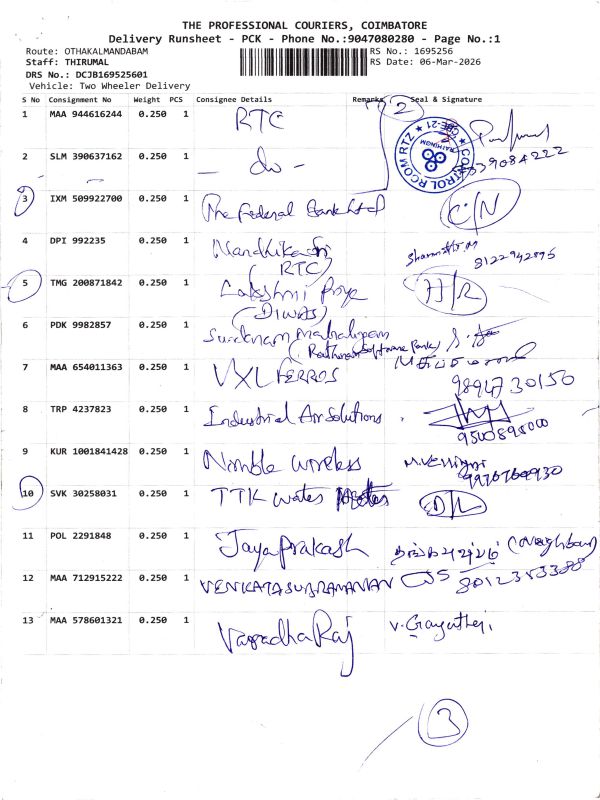 THE PROFESSIONAL COURIERS, COIMBATORE
Delivery Runsheet - PCK - Phone No.:9047080280 - Page No.:1
Route: OTHAKALMANDABAM
RS No.: 1695256
Staff: THIRUMAL
RS Date: 06-Mar-2026
DRS No.: DCJB169525601
Vehicle: Two Wheeler Delivery
S No Consignment No Weight PCS Consignee Details Remarks Seal & Signature
2
1 MAA 944616244 0.250 1 RTC
2 SLM 390637162 0.250 1 - do -
3 IXM 509922700 0.250 1 The Federal Bank Ltd C/N
4 DPI 992235 0.250 1 Nandhika Sri
(RTC) 8122942895
5 TMG 200871842 0.250 1 Lakshmi Priya D/R
(DIWAS)
6 PDK 9982857 0.250 1 Mahalingam
7 MAA 654011363 0.250 1 VXL FERROS
9894730150
8 TRP 4237823 0.250 1 Industrial Air Solutions
9500898000
9 KUR 1001841428 0.250 1 Nimble Wireless
10 SVK 30258031 0.250 1 TTK D/L
11 POL 2291848 0.250 1 Jaya Prakash (Neighbour)
12 MAA 712915222 0.250 1 VENKATASUBRAMANIAN 8012353388
13 MAA 578601321 0.250 1 Varadha Raj V. Gayathri
3